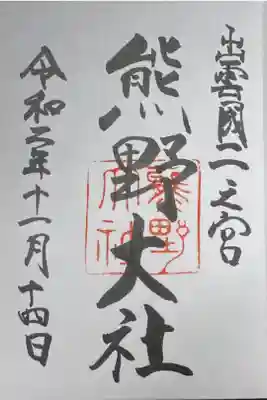 出雲國一之宮
熊野大社
熊野大社
令和二年十一月十四日